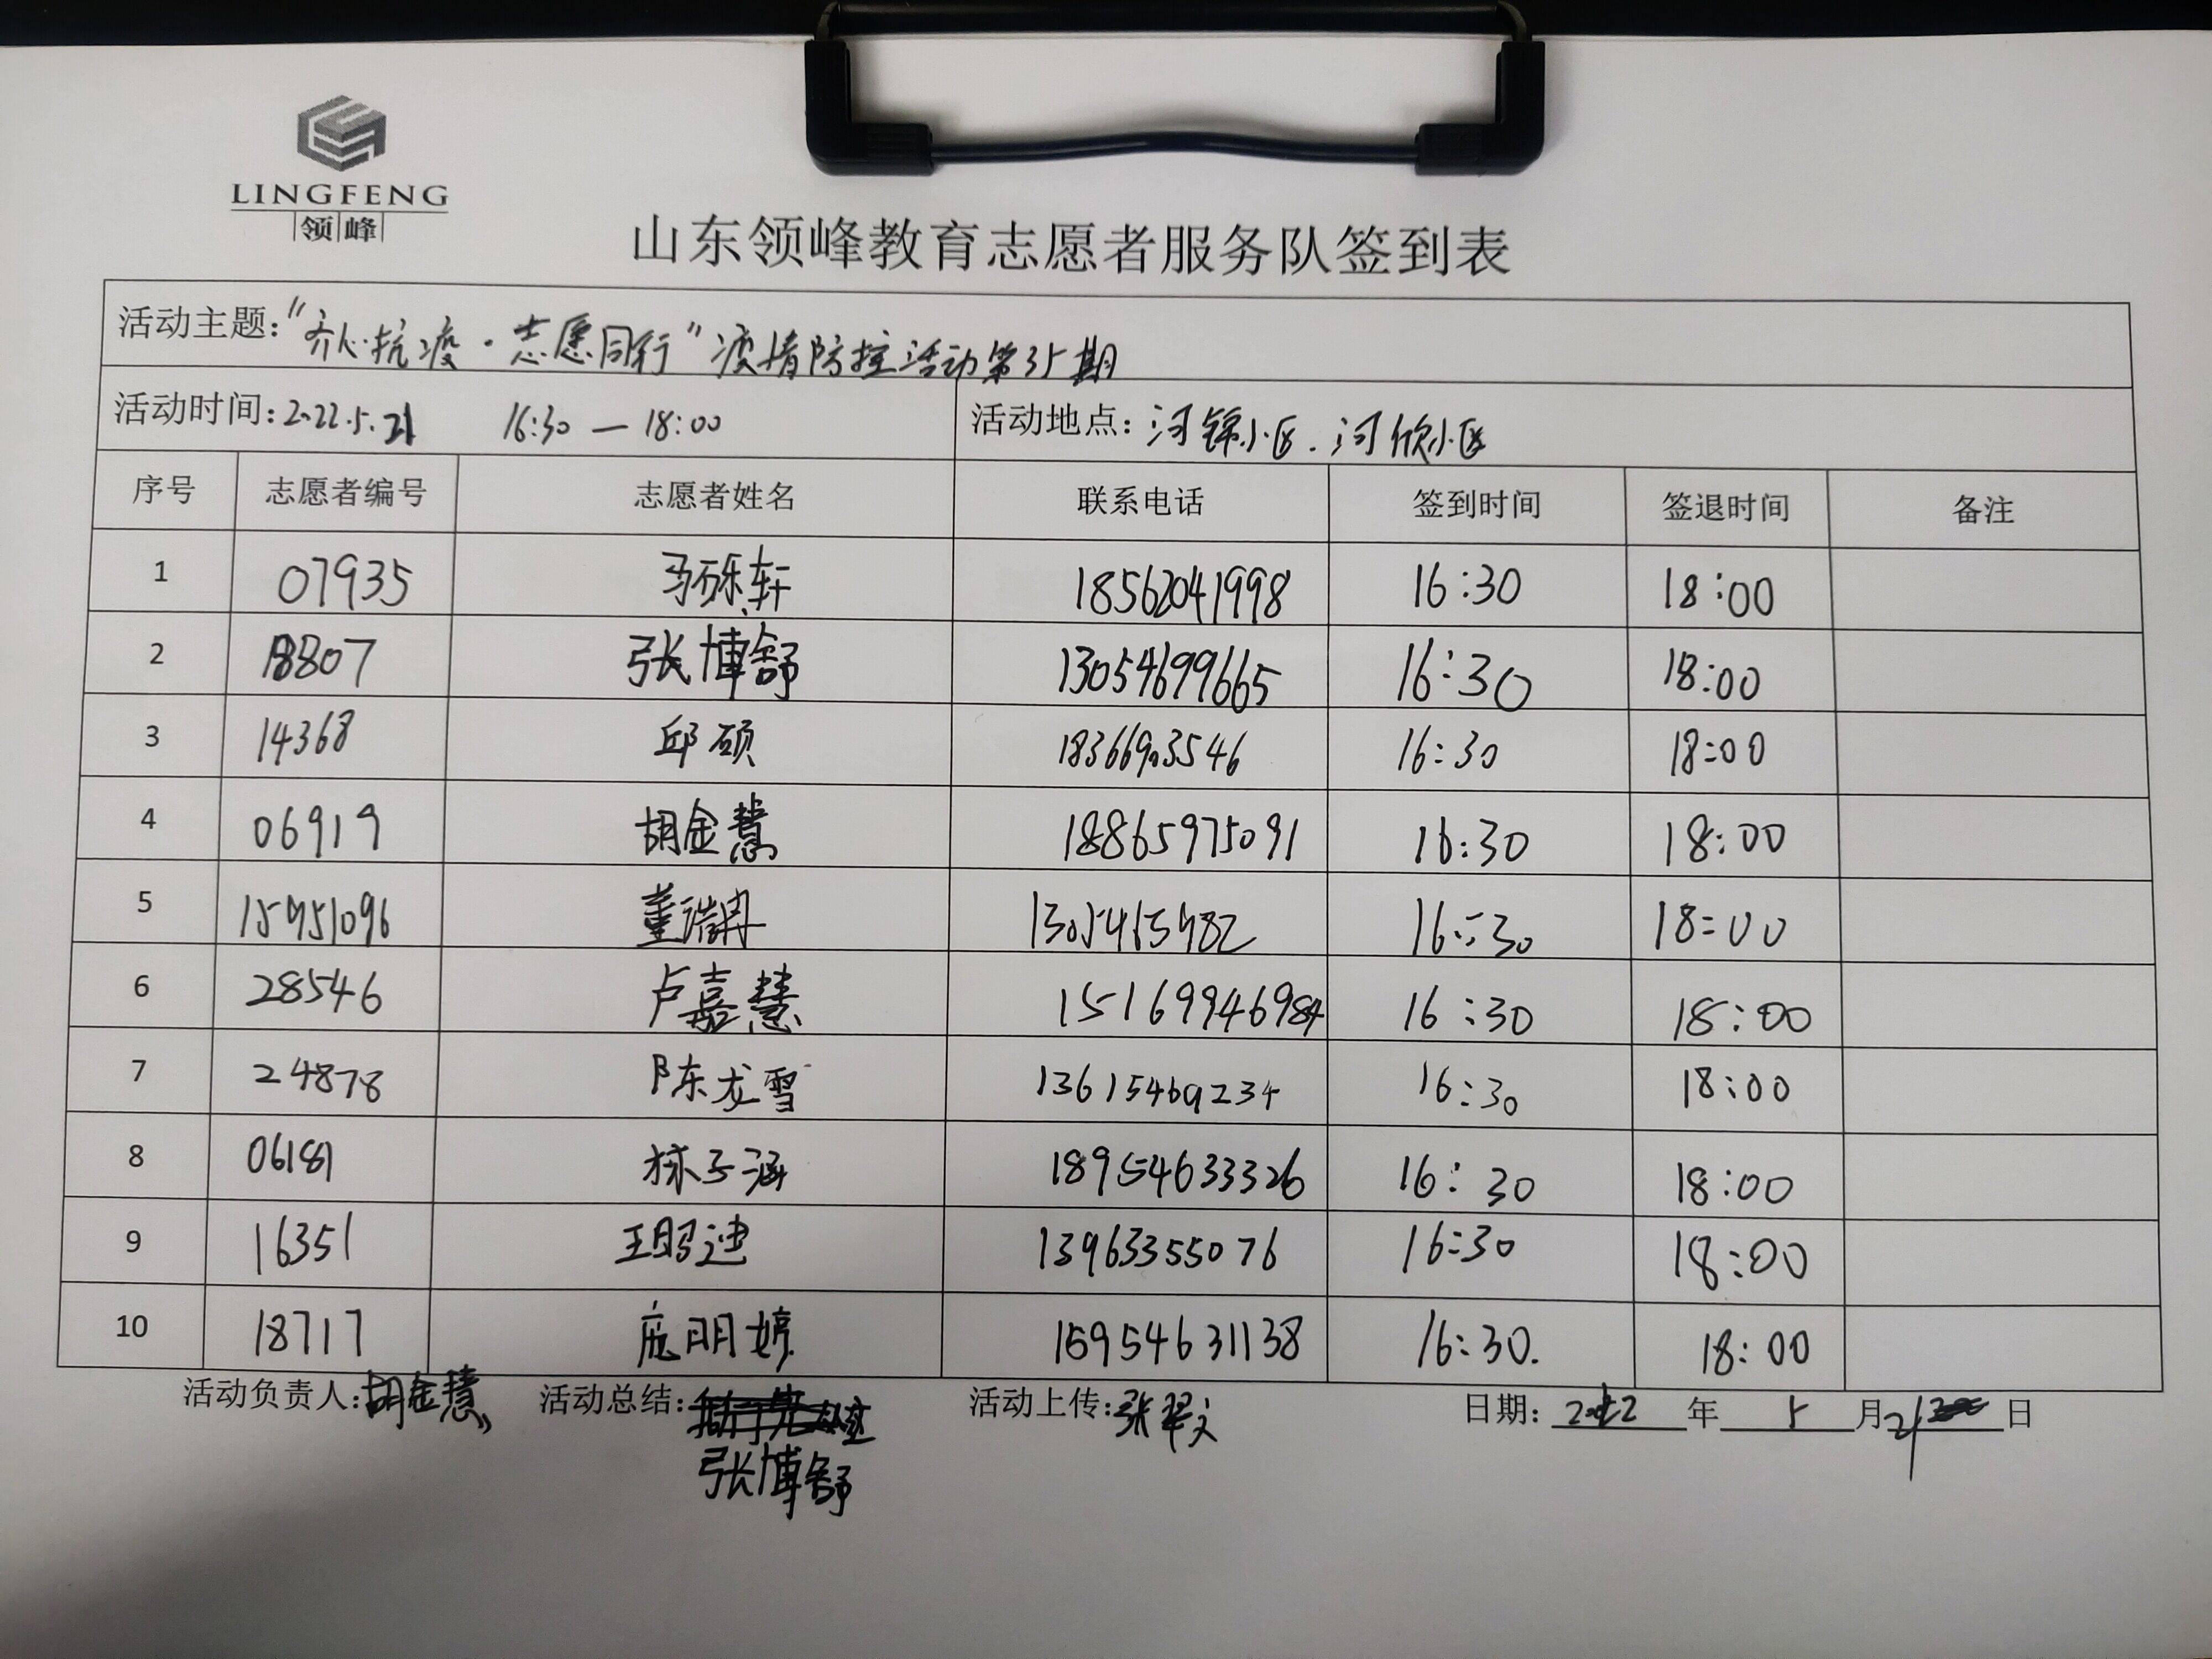 LINGFENG
领峰
山东领峰教育志愿者服务队签到表
活动主题:"齐心抗疫·志愿同行"疫情防控活动第35期
活动时间:2022.5.21 16:30—18:00 活动地点:河锦小区.河欣小区
序号 志愿者编号 志愿者姓名 联系电话 签到时间 签退时间 备注
1 07935 马砾轩 18562041998 16:30 18:00
2 18807 张博舒 13054699665 16:30 18:00
3 14368 邱硕 18366903546 16:30 18:00
4 06919 胡金慧 18865975091 16:30 18:00
5 董 16:30 18:00
6 28546 卢嘉慧 15169946984 16:30 18:00
7 24878 陈龙雪 13615469234 16:30 18:00
8 06181 林子涵 18954633326 16:30 18:00
9 16351 王 迪 13963355076 16:30 18:00
10 18717 庞明婷 15954631138 16:30. 18:00
活动负责人:胡金慧 活动总结: 活动上传:张翠文 日期:2022年5月21日
张博舒